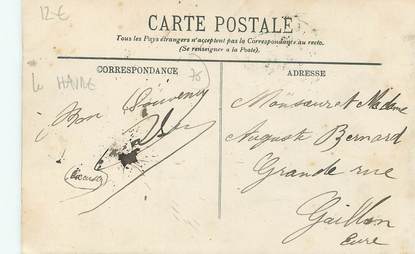 12 €
CARTE POSTALE
Tous les Pays étrangers n'acceptent pas la Correspondance au recto.
(Se renseigner à la Poste).
CORRESPONDANCE
ADRESSE
Le HAVRE
76
Bon Souvenir
Monsieur et Madame
Auguste Bernard
Grande rue
Gaillon
Eure